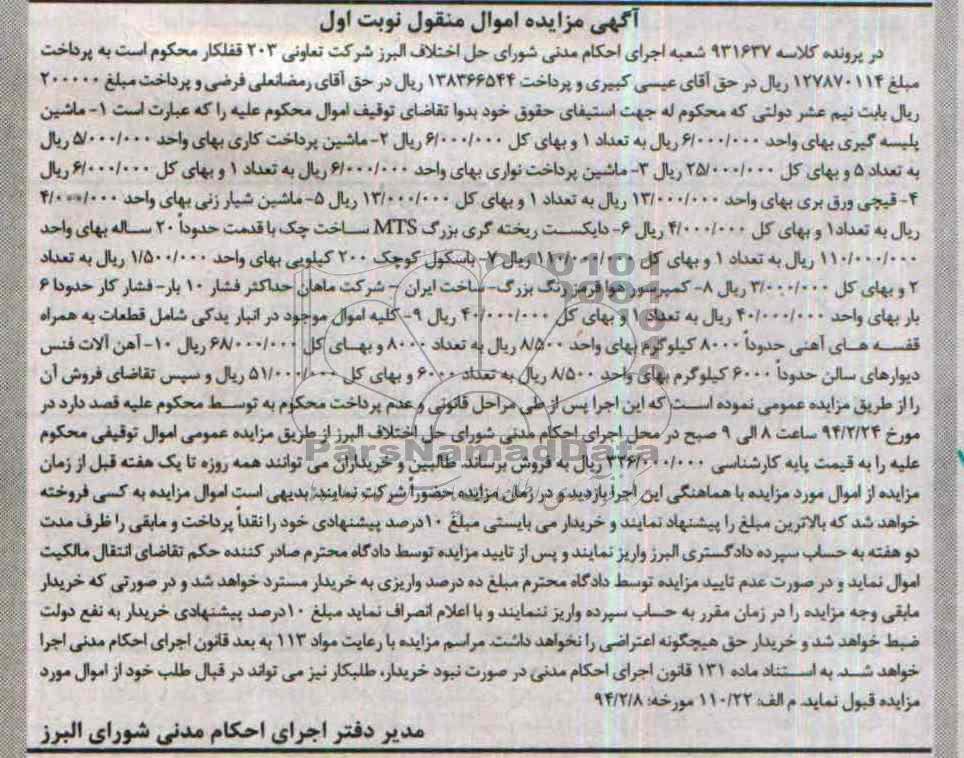 آگهی مزایده اموال منقول نوبت اول
در پرونده کلاسه ۹۳۱۶۳۷ شعبه اجرای احکام مدنی شورای حل اختلاف البرز شرکت تعاونی ۲۰۳ قفلکار محکوم است به پرداخت
مبلغ ۱۲۷۸۷۰۱۱۴ ریال در حق آقای عیسی کبیری و پرداخت ۱۳۸۳۶۶۵۴۴ ریال در حق آقای رمضانعلی فرضی و پرداخت مبلغ ۲۰۰۰۰۰
ریال بابت نیم عشر دولتی که محکوم له جهت استیفای حقوق خود بدوا تقاضای توقیف اموال محکوم علیه را که عبارت است ۱- ماشین
پلیسه گیری بهای واحد ۶/۰۰۰/۰۰۰ ریال به تعداد ۱ و بهای کل ۶/۰۰۰/۰۰۰ ریال ۲- ماشین پرداخت کاری بهای واحد ۵/۰۰۰/۰۰۰ ریال
به تعداد ۵ و بهای کل ۲۵/۰۰۰/۰۰۰ ریال ۳- ماشین پرداخت نواری بهای واحد ۶/۰۰۰/۰۰۰ ریال به تعداد ۱ و بهای کل ۶/۰۰۰/۰۰۰ ریال
۴- قیچی ورق بری بهای واحد ۱۳/۰۰۰/۰۰۰ ریال به تعداد ۱ و بهای کل ۱۳/۰۰۰/۰۰۰ ریال ۵- ماشین شیار زنی بهای واحد ۴/۰۰۰/۰۰۰
ریال به تعداد۱ و بهای کل ۴/۰۰۰/۰۰۰ ریال ۶- دایکست ریخته گری بزرگ MTS ساخت چک با قدمت حدوداً ۲۰ ساله بهای واحد
۱۱۰/۰۰۰/۰۰۰ ریال به تعداد ۱ و بهای کل ۱۱۰/۰۰۰/۰۰۰ ریال ۷- باسکول کوچک ۲۰۰ کیلویی بهای واحد ۱/۵۰۰/۰۰۰ ریال به تعداد
۲ و بهای کل ۳/۰۰۰/۰۰۰ ریال ۸- کمپرسور هوا قرمز رنگ بزرگ- ساخت ایران - شرکت ماهان حداکثر فشار ۱۰ بار- فشار کار حدودا ۶
بار بهای واحد ۴۰/۰۰۰/۰۰۰ ریال به تعداد ۱ و بهای کل ۴۰/۰۰۰/۰۰۰ ریال ۹- کلیه اموال موجود در انبار یدکی شامل قطعات به همراه
قفسه های آهنی حدوداً ۸۰۰۰ کیلوگرم بهای واحد ۸/۵۰۰ ریال به تعداد ۸۰۰۰ و بهای کل ۶۸/۰۰۰/۰۰۰ ریال ۱۰- آهن آلات فنس
دیوارهای سالن حدوداً ۶۰۰۰ کیلوگرم بهای واحد ۸/۵۰۰ ریال به تعداد ۶۰۰۰ و بهای کل ۵۱/۰۰۰/۰۰۰ ریال و سپس تقاضای فروش آن
را از طریق مزایده عمومی نموده است که این اجرا پس از طی مراحل قانونی و عدم پرداخت محکوم به توسط محکوم علیه قصد دارد در
مورخ ۹۴/۲/۲۴ ساعت ۸ الی ۹ صبح در محل اجرای احکام مدنی شورای حل اختلاف البرز از طریق مزایده عمومی اموال توقیفی محکوم
علیه را به قیمت پایه کارشناسی ۳۲۶/۰۰۰/۰۰۰ ریال به فروش برساند. طالبین و خریداران می توانند همه روزه تا یک هفته قبل از زمان
مزایده از اموال مورد مزایده با هماهنگی این اجرا بازدید و در زمان مزایده حضوراً شرکت نمایند. بدیهی است اموال مزایده به کسی فروخته
خواهد شد که بالاترین مبلغ را پیشنهاد نمایند و خریدار می بایستی مبلغ ۱۰درصد پیشنهادی خود را نقداً پرداخت و مابقی را ظرف مدت
دو هفته به حساب سپرده دادگستری البرز واریز نمایند و پس از تایید مزایده توسط دادگاه محترم صادر کننده حکم تقاضای انتقال مالکیت
اموال نماید و در صورت عدم تایید مزایده توسط دادگاه محترم مبلغ ده درصد واریزی به خریدار مسترد خواهد شد و در صورتی که خریدار
مابقی وجه مزایده را در زمان مقرر به حساب سپرده واریز ننمایند و با اعلام انصراف نماید مبلغ ۱۰درصد پیشنهادی خریدار به نفع دولت
ضبط خواهد شد و خریدار حق هیچگونه اعتراضی را نخواهد داشت. مراسم مزایده با رعایت مواد ۱۱۳ به بعد قانون اجرای احکام مدنی اجرا
خواهد شد. به استناد ماده ۱۳۱ قانون اجرای احکام مدنی در صورت نبود خریدار، طلبکار نیز می تواند در قبال طلب خود از اموال مورد
مزایده قبول نماید. م الف: ۱۱۰/۲۲ مورخه: ۹۴/۲/۸
مدیر دفتر اجرای احکام مدنی شورای البرز
ParsNamadData